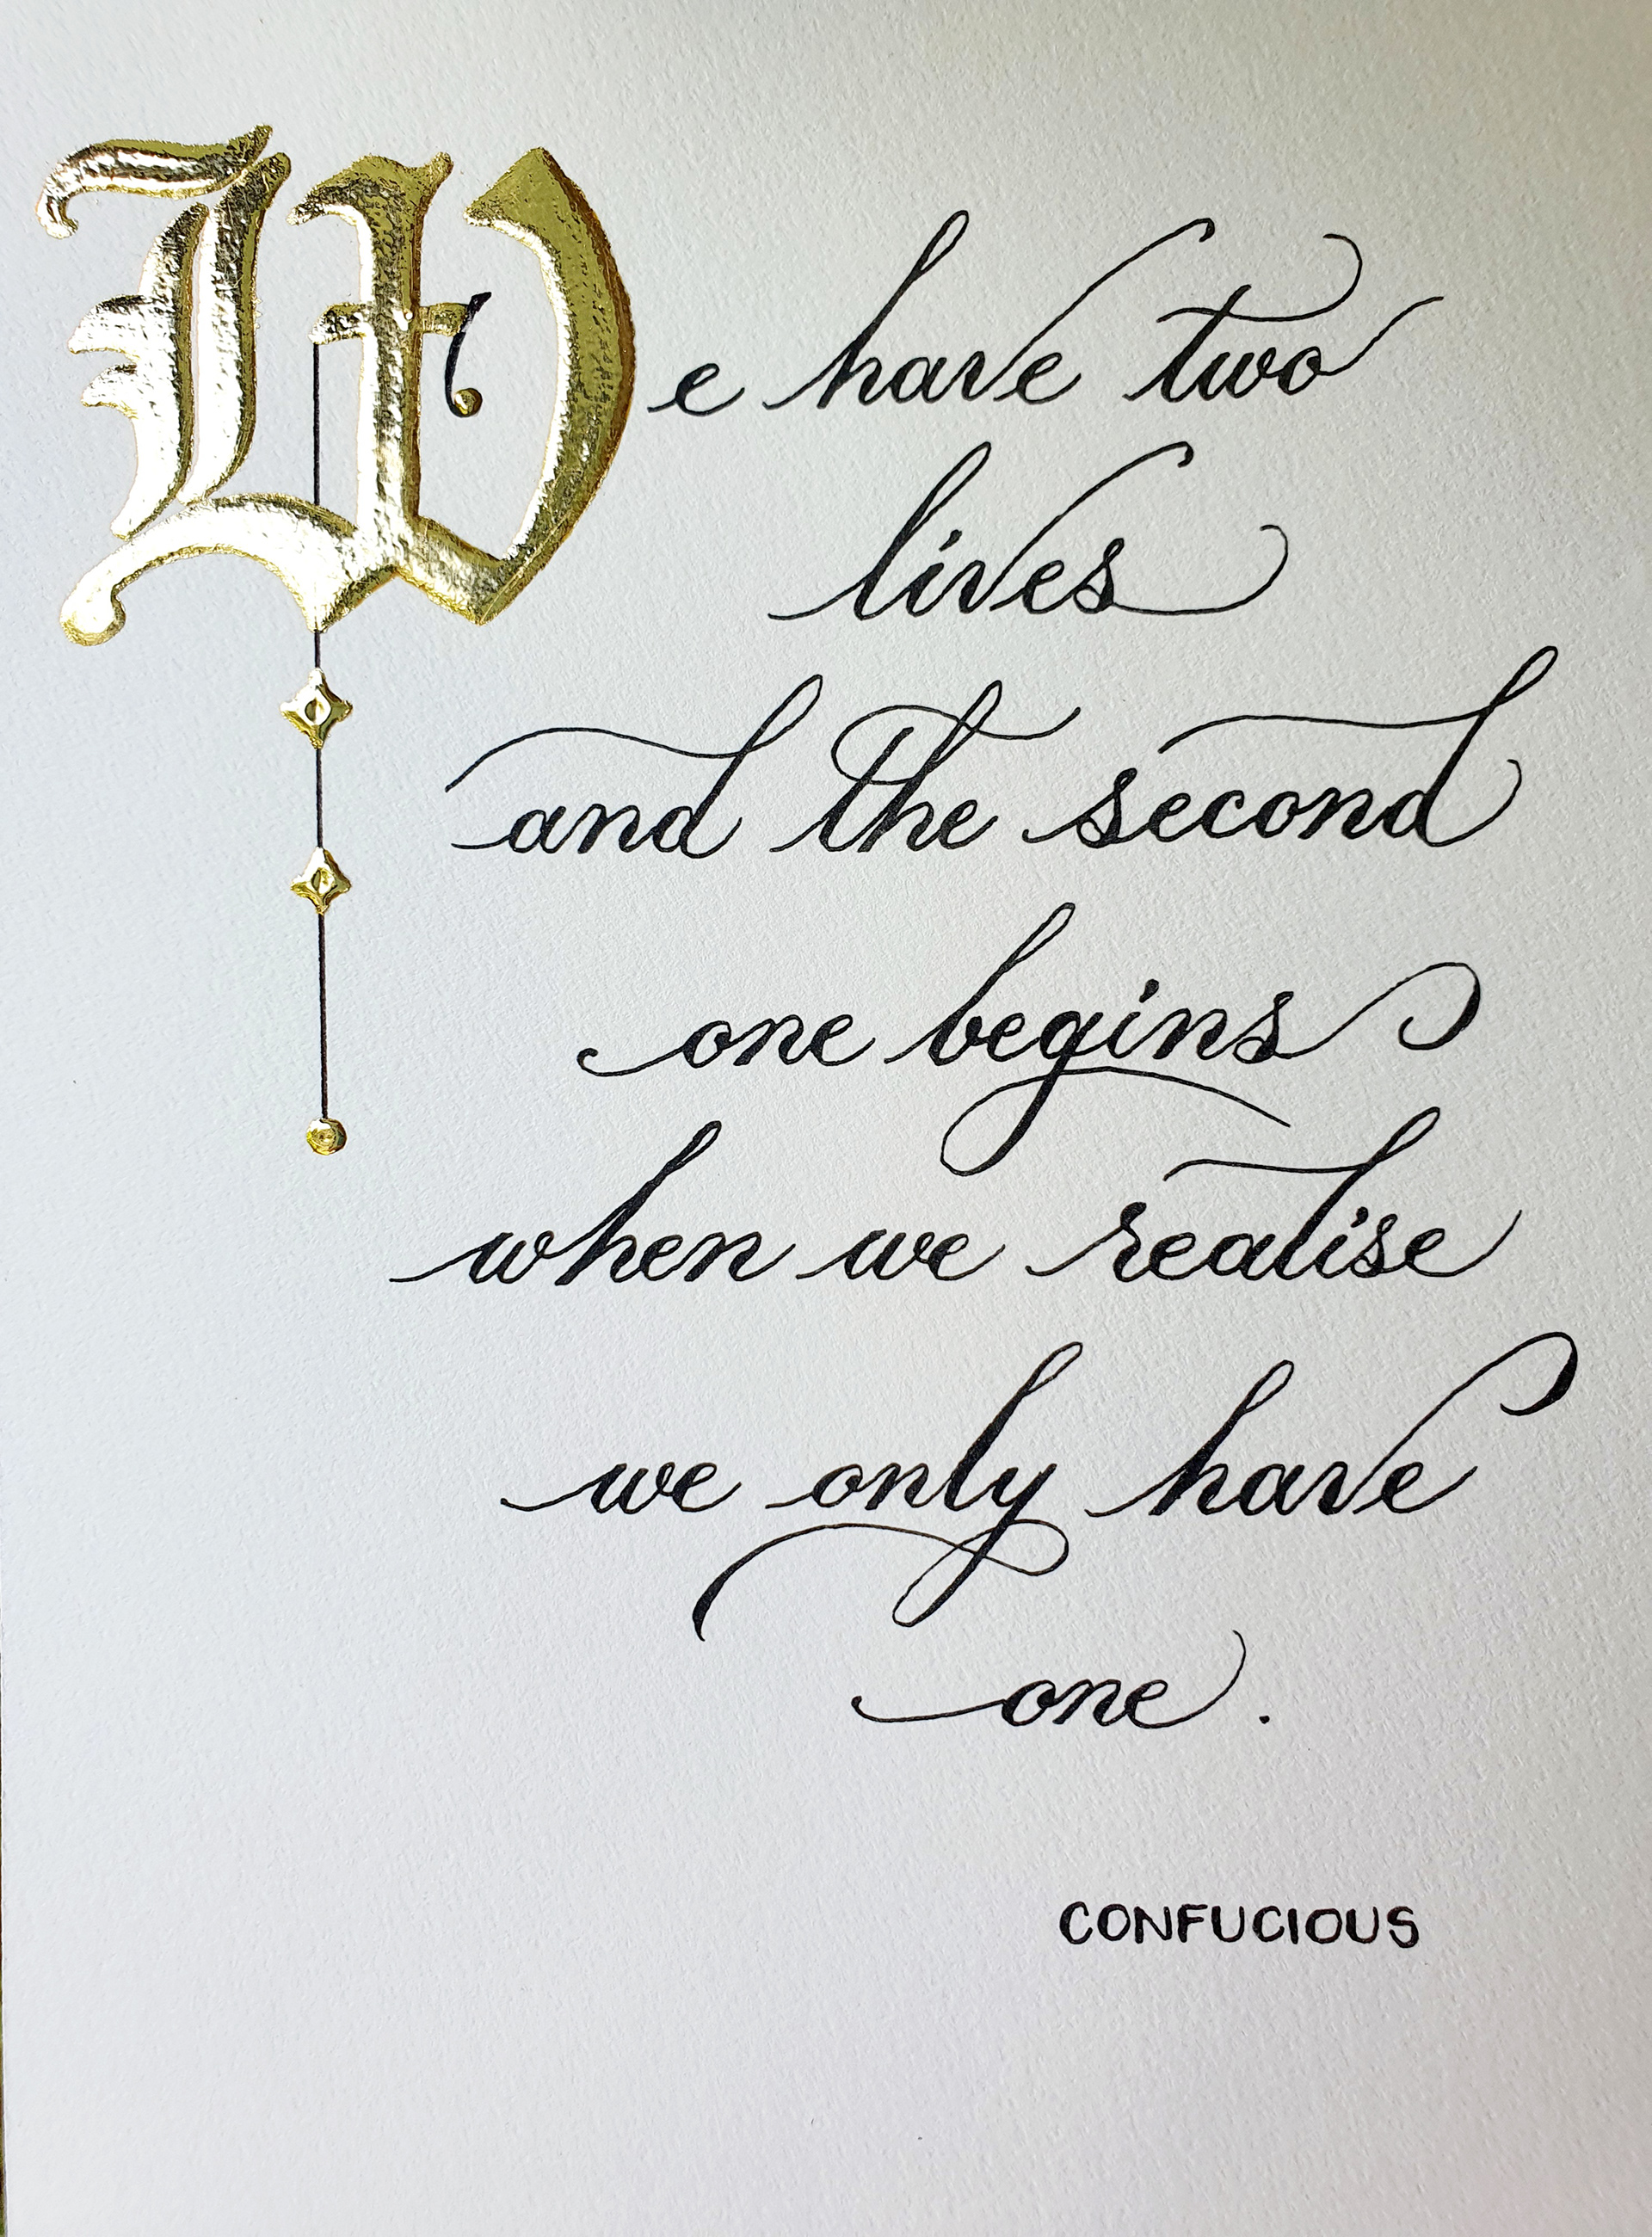 We have two
lives
and the second
one begins
when we realise
we only have
one.
CONFUCIOUS